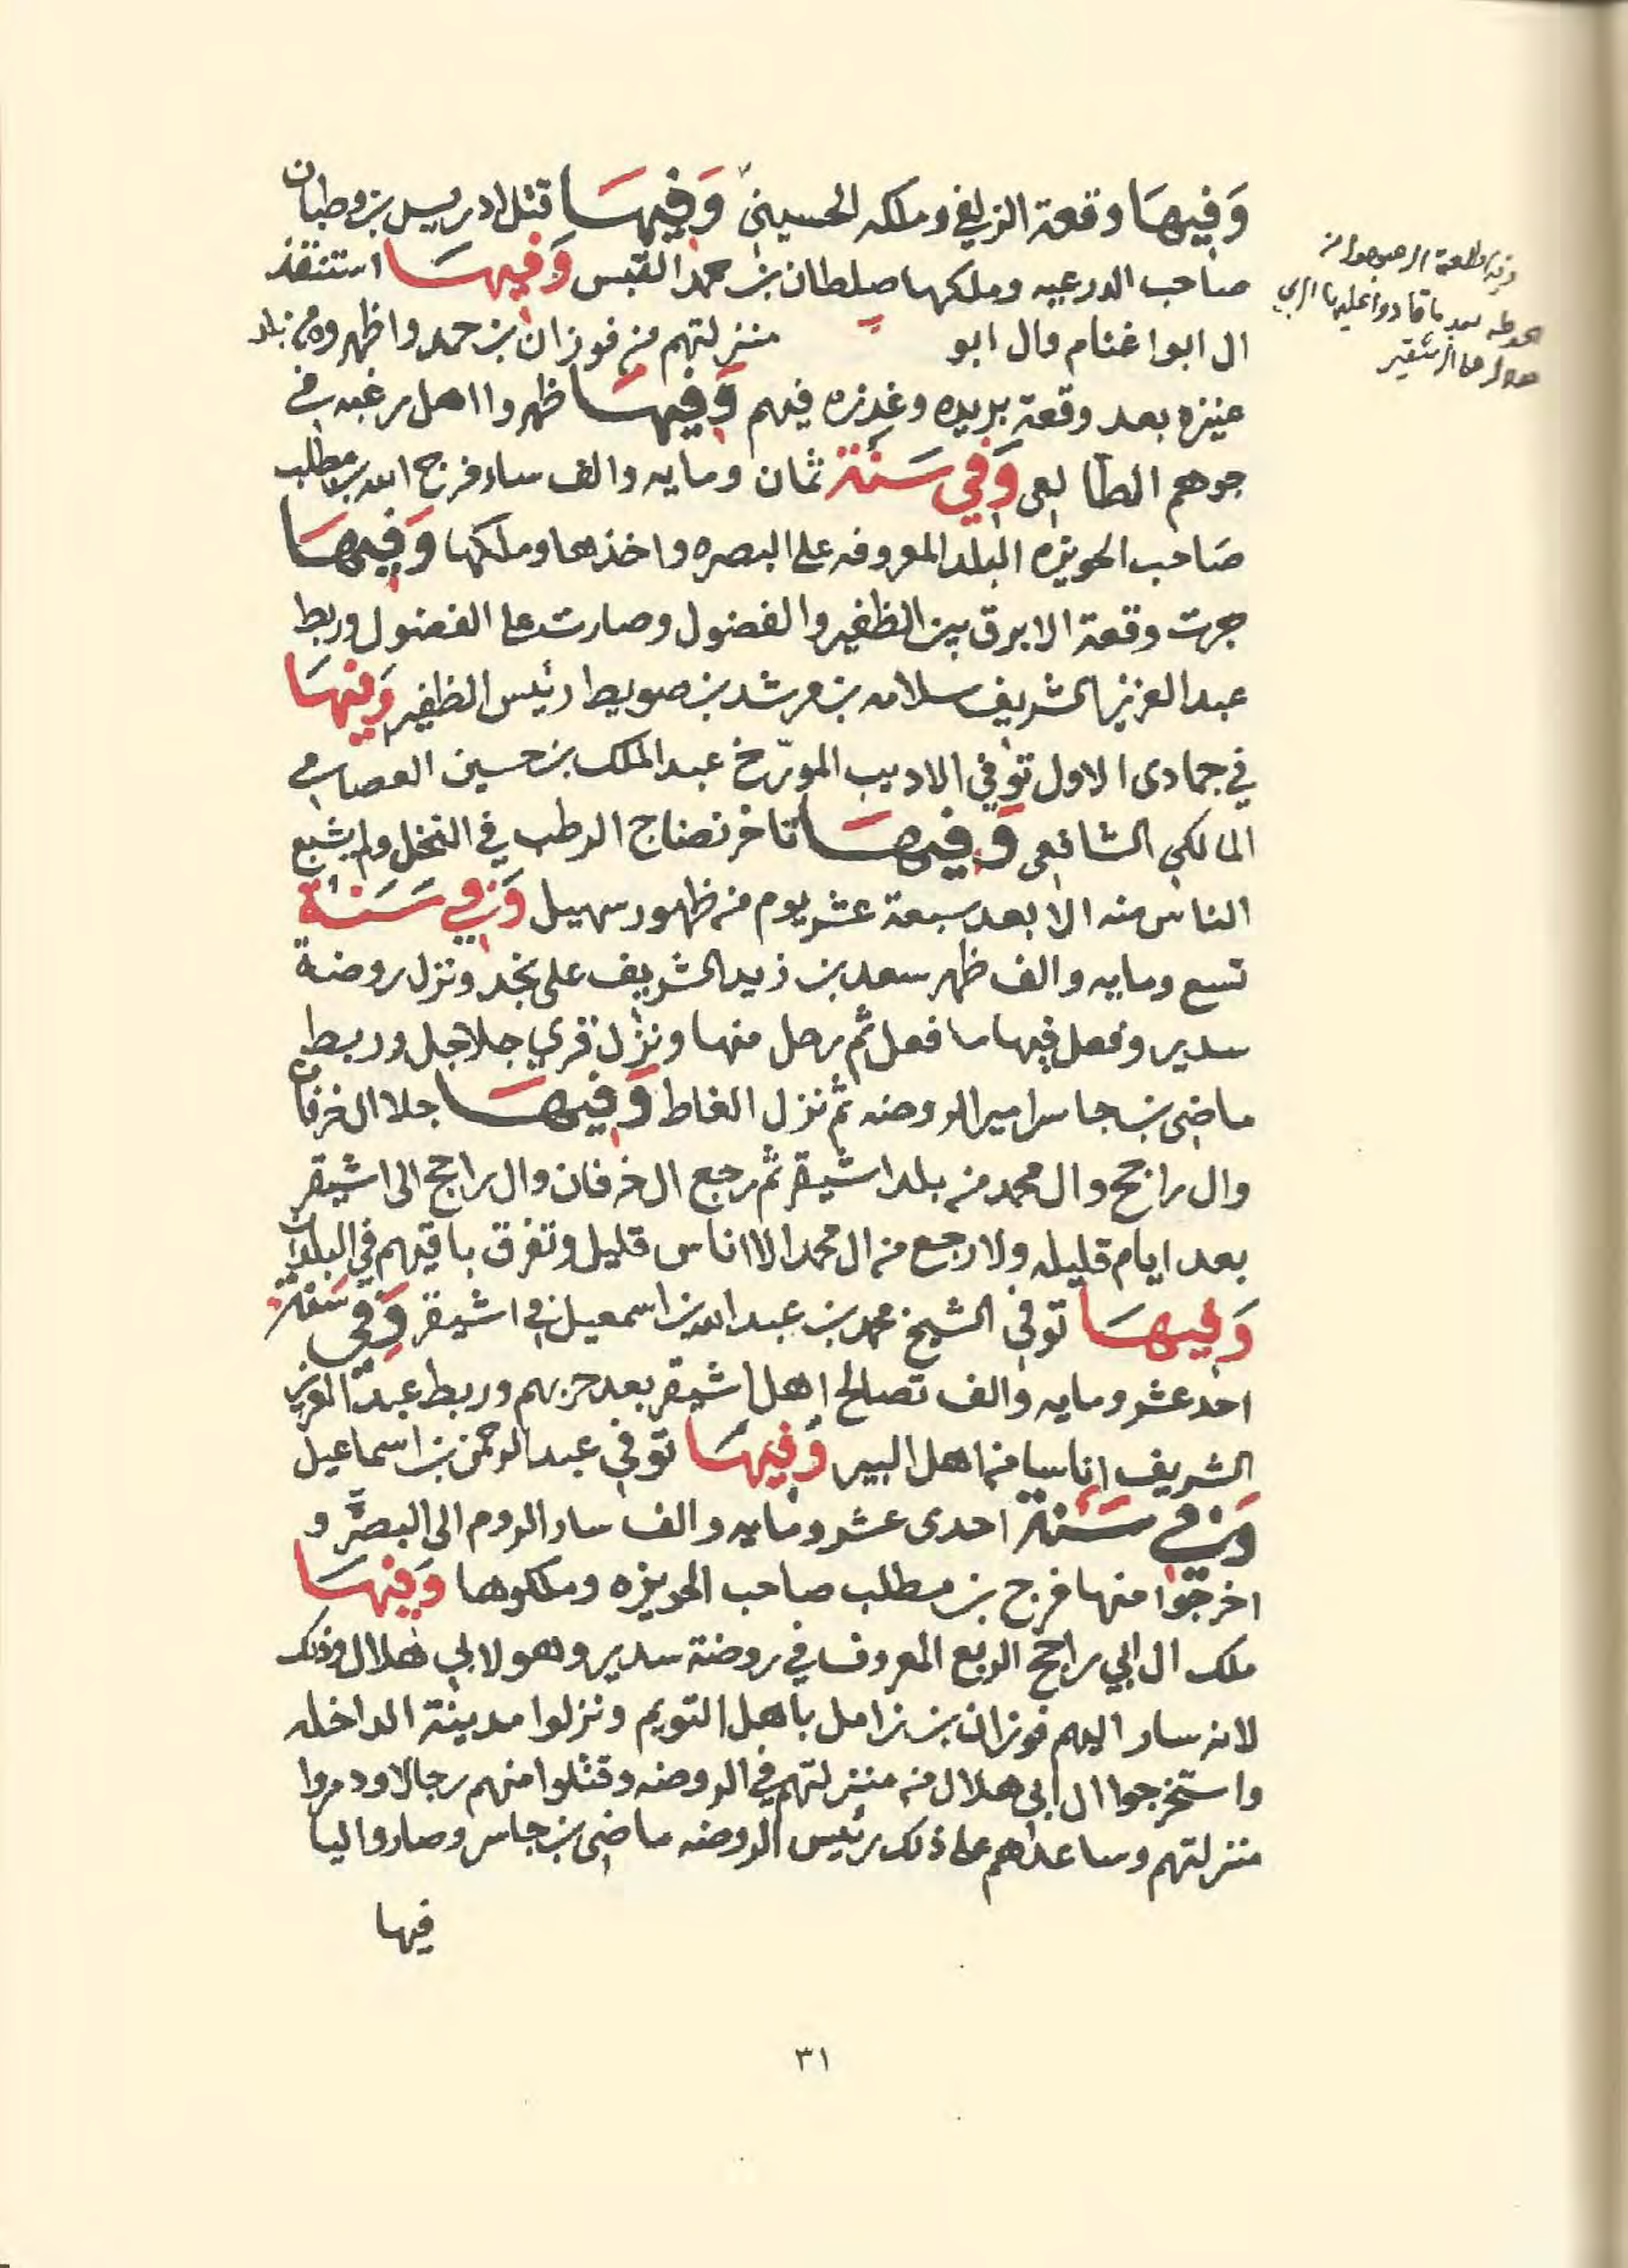 وَفيهَا وقعة الزلفي وملكه الحسيني وَفيهَا قتل ادريس بن وطبان
صاحب الدرعيه وملكها صلطان بن حمد القبس وَفيهَا استنقذ
ال ابوا غنام وال ابو منزلتهم من فوزان بن حمد واظهروه من بلد
عنيزه بعد وقعة بريده وغدره فيهم وَفيهَا ظهروا اهل رغبه في
جوهم الطالعي وَفي سَنة ثمان ومايه والف سار فرج الله بن مطلب
صَاحب الحويزه البلد المعروفه على البصره واخذها وملكها وَفيهَا
جرت وقعة الابرق بين الظفير والفضول وصارت على الفضول وربط
عبد العزيز الشريف سلامه بن مرشد بن صويط رئيس الظفير وَفيهَا
في جمادى الاول توفي الاديب المورّخ عبد الملك بن حسين العصامي
المالكي الشافعي وَفيهَا تاخر نضاج الرطب في النخل ولم يشبع
الناس منه الا بعد سبعة عشر يوم من ظهور سهيل وَفي سَنة
تسع ومايه والف ظهر سعد بن زيد الشريف على نجد ونزل روضة
سدير وفعل فيها ما فعل ثم رحل منها ونزل قري جلاجل وربط
ماضي بن جاسر امير الروضه ثم نزل الغاط وَفيهَا جلا ال خرفان
وال راجح وال محمد من بلد اشيقر ثم رجع ال خرفان وال راجح الى اشيقر
بعد ايام قليله ولا رجع من ال محمد الا اناس قليل وتفرق باقيهم في البلدان
وَفيهَا توفي الشيخ محمد بن عبد الله بن اسمعيل في اشيقر وَفي سَنة
احد عشر ومايه والف تصالح اهل اشيقر بعد حربهم وربط عبد العزيز
الشريف اناسا من اهل البير وَفيهَا توفي عبد الرحمن بن اسماعيل
وَفي سَنة احدى عشر ومايه والف سار الروم الى البصره و
اخرجوا منها فرج بن مطلب صاحب الحويزه وملكوها وَفيهَا
ملك ال ابي راجح الربع المعروف في روضة سدير وهو لابي هلال وذلك
لانه سار اليهم فوزان بن زامل باهل التويم ونزلوا مدينة الداخله
واستخرجوا ال ابي هلال من منزلتهم في الروضه وقتلوا منهم رجالا ودمروا
منزلتهم وساعدهم على ذلك رئيس الروضه ماضي بن جاسر وصاروا ليا
فيها
٣١